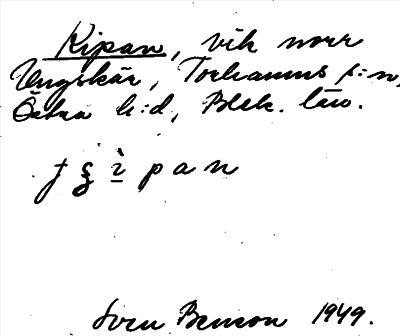 Kipan, vik norr
Ungskär, Torhamns s:n,
Östra h:d, Blek. län.
i p a n
Sven Benson 1949.